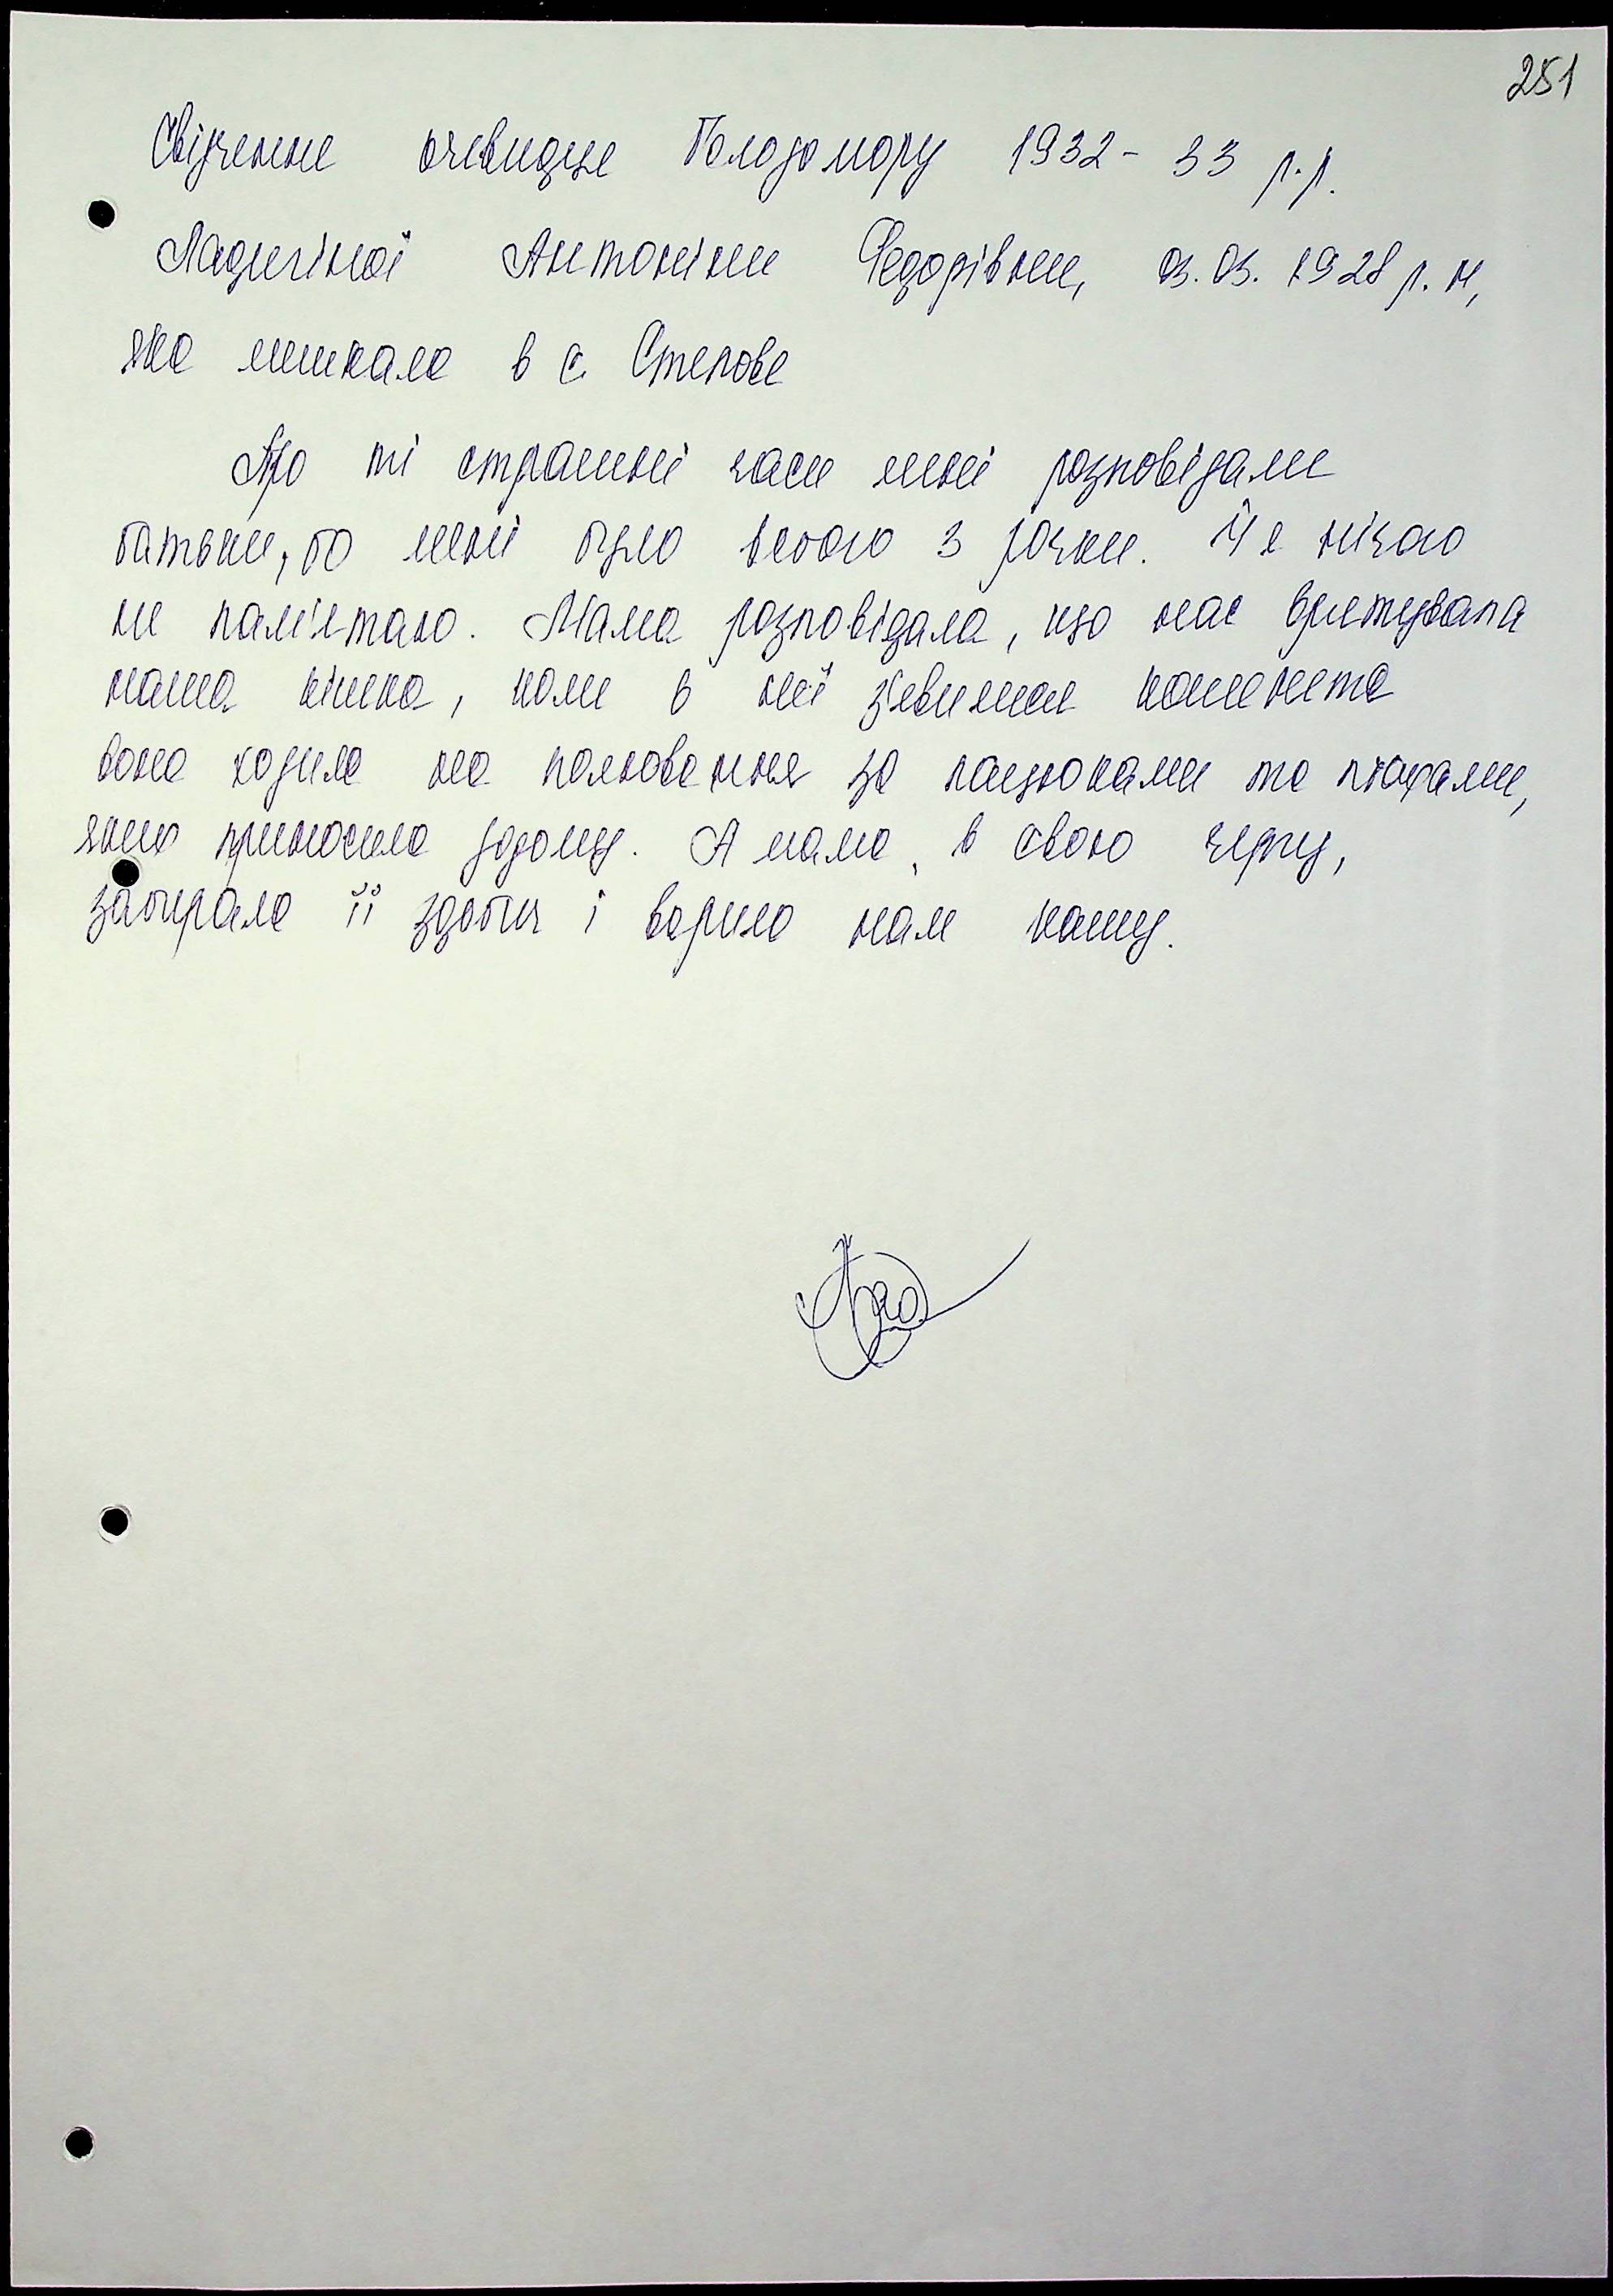 251
Свідчення очевидця Голодомору 1932 - 33 р.р.
Ладигіної Антоніни Федорівни, 03.03.1928 р.н,
яка мешкала в с. Степове
Про ті страшні часи мені розповідали
батьки, бо мені було всього 3 рочки. Й я нічого
не пам'ятаю. Мама розповідала, що нас врятувала
наша кішка, коли в неї з'явилися кошенята
вона ходила на полювання за пацюками та птахами,
яких приносила додому. А мама, в свою чергу,
забирала її здобич і варила нам кашу.